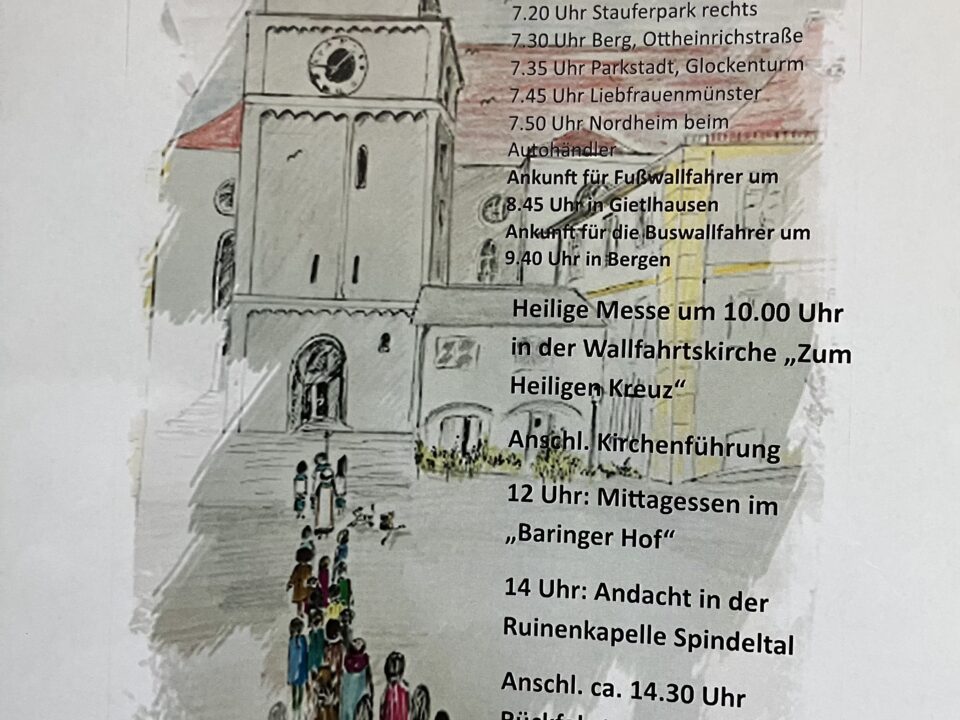 7.20 Uhr Stauferpark rechts
7.30 Uhr Berg, Ottheinrichstraße
7.35 Uhr Parkstadt, Glockenturm
7.45 Uhr Liebfrauenmünster
7.50 Uhr Nordheim beim
Autohändler
Ankunft für Fußwallfahrer um
8.45 Uhr in Gietlhausen
Ankunft für die Buswallfahrer um
9.40 Uhr in Bergen
Heilige Messe um 10.00 Uhr
in der Wallfahrtskirche „Zum
Heiligen Kreuz“
Anschl. Kirchenführung
12 Uhr: Mittagessen im
„Baringer Hof“
14 Uhr: Andacht in der
Ruinenkapelle Spindeltal
Anschl. ca. 14.30 Uhr